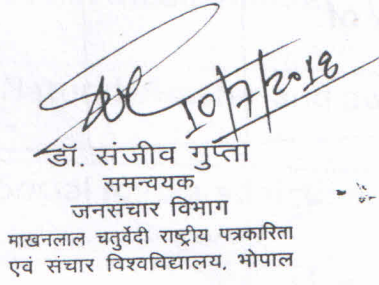 10/7/2018
डॉ. संजीव गुप्ता
समन्वयक
जनसंचार विभाग
माखनलाल चतुर्वेदी राष्ट्रीय पत्रकारिता
एवं संचार विश्वविद्यालय, भोपाल